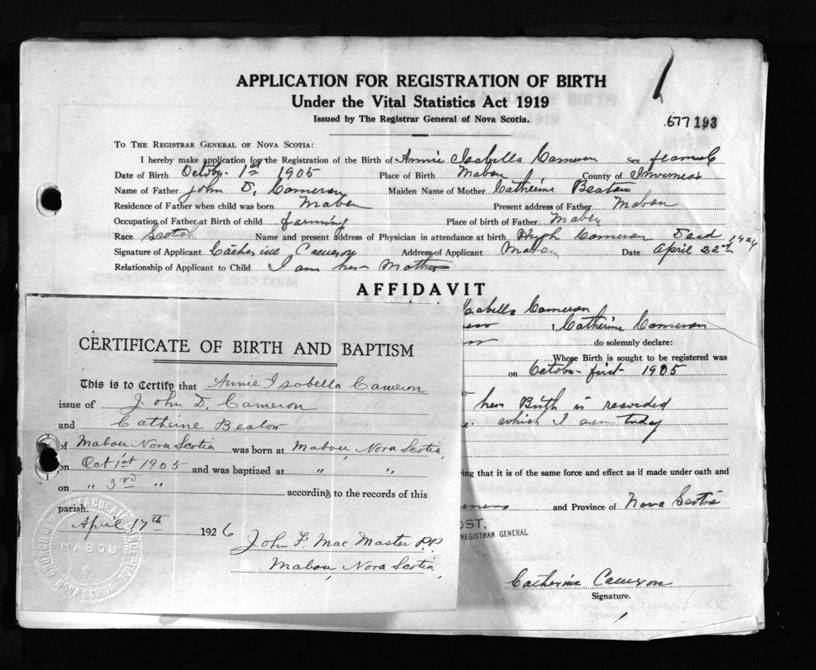 APPLICATION FOR REGISTRATION OF BIRTH
Under the Vital Statistics Act 1919
Issued by The Registrar General of Nova Scotia.
677193
TO THE REGISTRAR GENERAL OF NOVA SCOTIA:
I hereby make application for the Registration of the Birth of Annie Isabella Cameron Sex
Date of Birth October 1st 1905 Place of Birth Mabou County of Inverness
Name of Father John D. Cameron Maiden Name of Mother Catherine Beaton
Residence of Father when child was born Mabou Present address of Father Mabou
Occupation of Father at Birth of child farming Place of birth of Father Mabou
Race Scotch Name and present address of Physician in attendance at birth Hugh Cameron Dead
Signature of Applicant Catherine Cameron Address of Applicant Mabou Date April 22nd
Relationship of Applicant to Child I am her Mother
AFFIDAVIT
Isabella Cameron
I, Catherine Cameron
do solemnly declare:
Whose Birth is sought to be registered was
on October first 1905
her Birth is recorded
which I am today
ring that it is of the same force and effect as if made under oath and
and Province of Nova Scotia
OST,
REGISTRAR GENERAL
Catherine Cameron
Signature.
CERTIFICATE OF BIRTH AND BAPTISM
This is to Certify that Annie Isabella Cameron
issue of John D. Cameron
and Catherine Beaton
of Mabou Nova Scotia was born at Mabou, Nova Scotia,
on Oct 1st 1905 and was baptized at " "
on " 3rd " according to the records of this
parish.
April 17th 1926
John F. Mac Master P.P.
Mabou, Nova Scotia,
MABOU